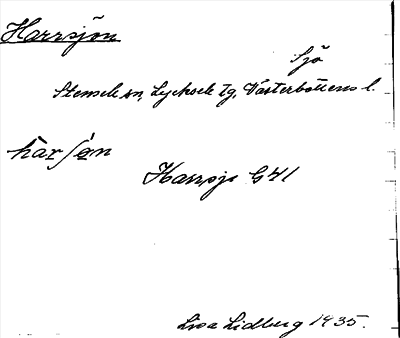 Harrsjön
Sjö
Stensele sn, Lycksele tg. Västerbottens l.
Harrsjö G41
Lisa Lidberg 1935.